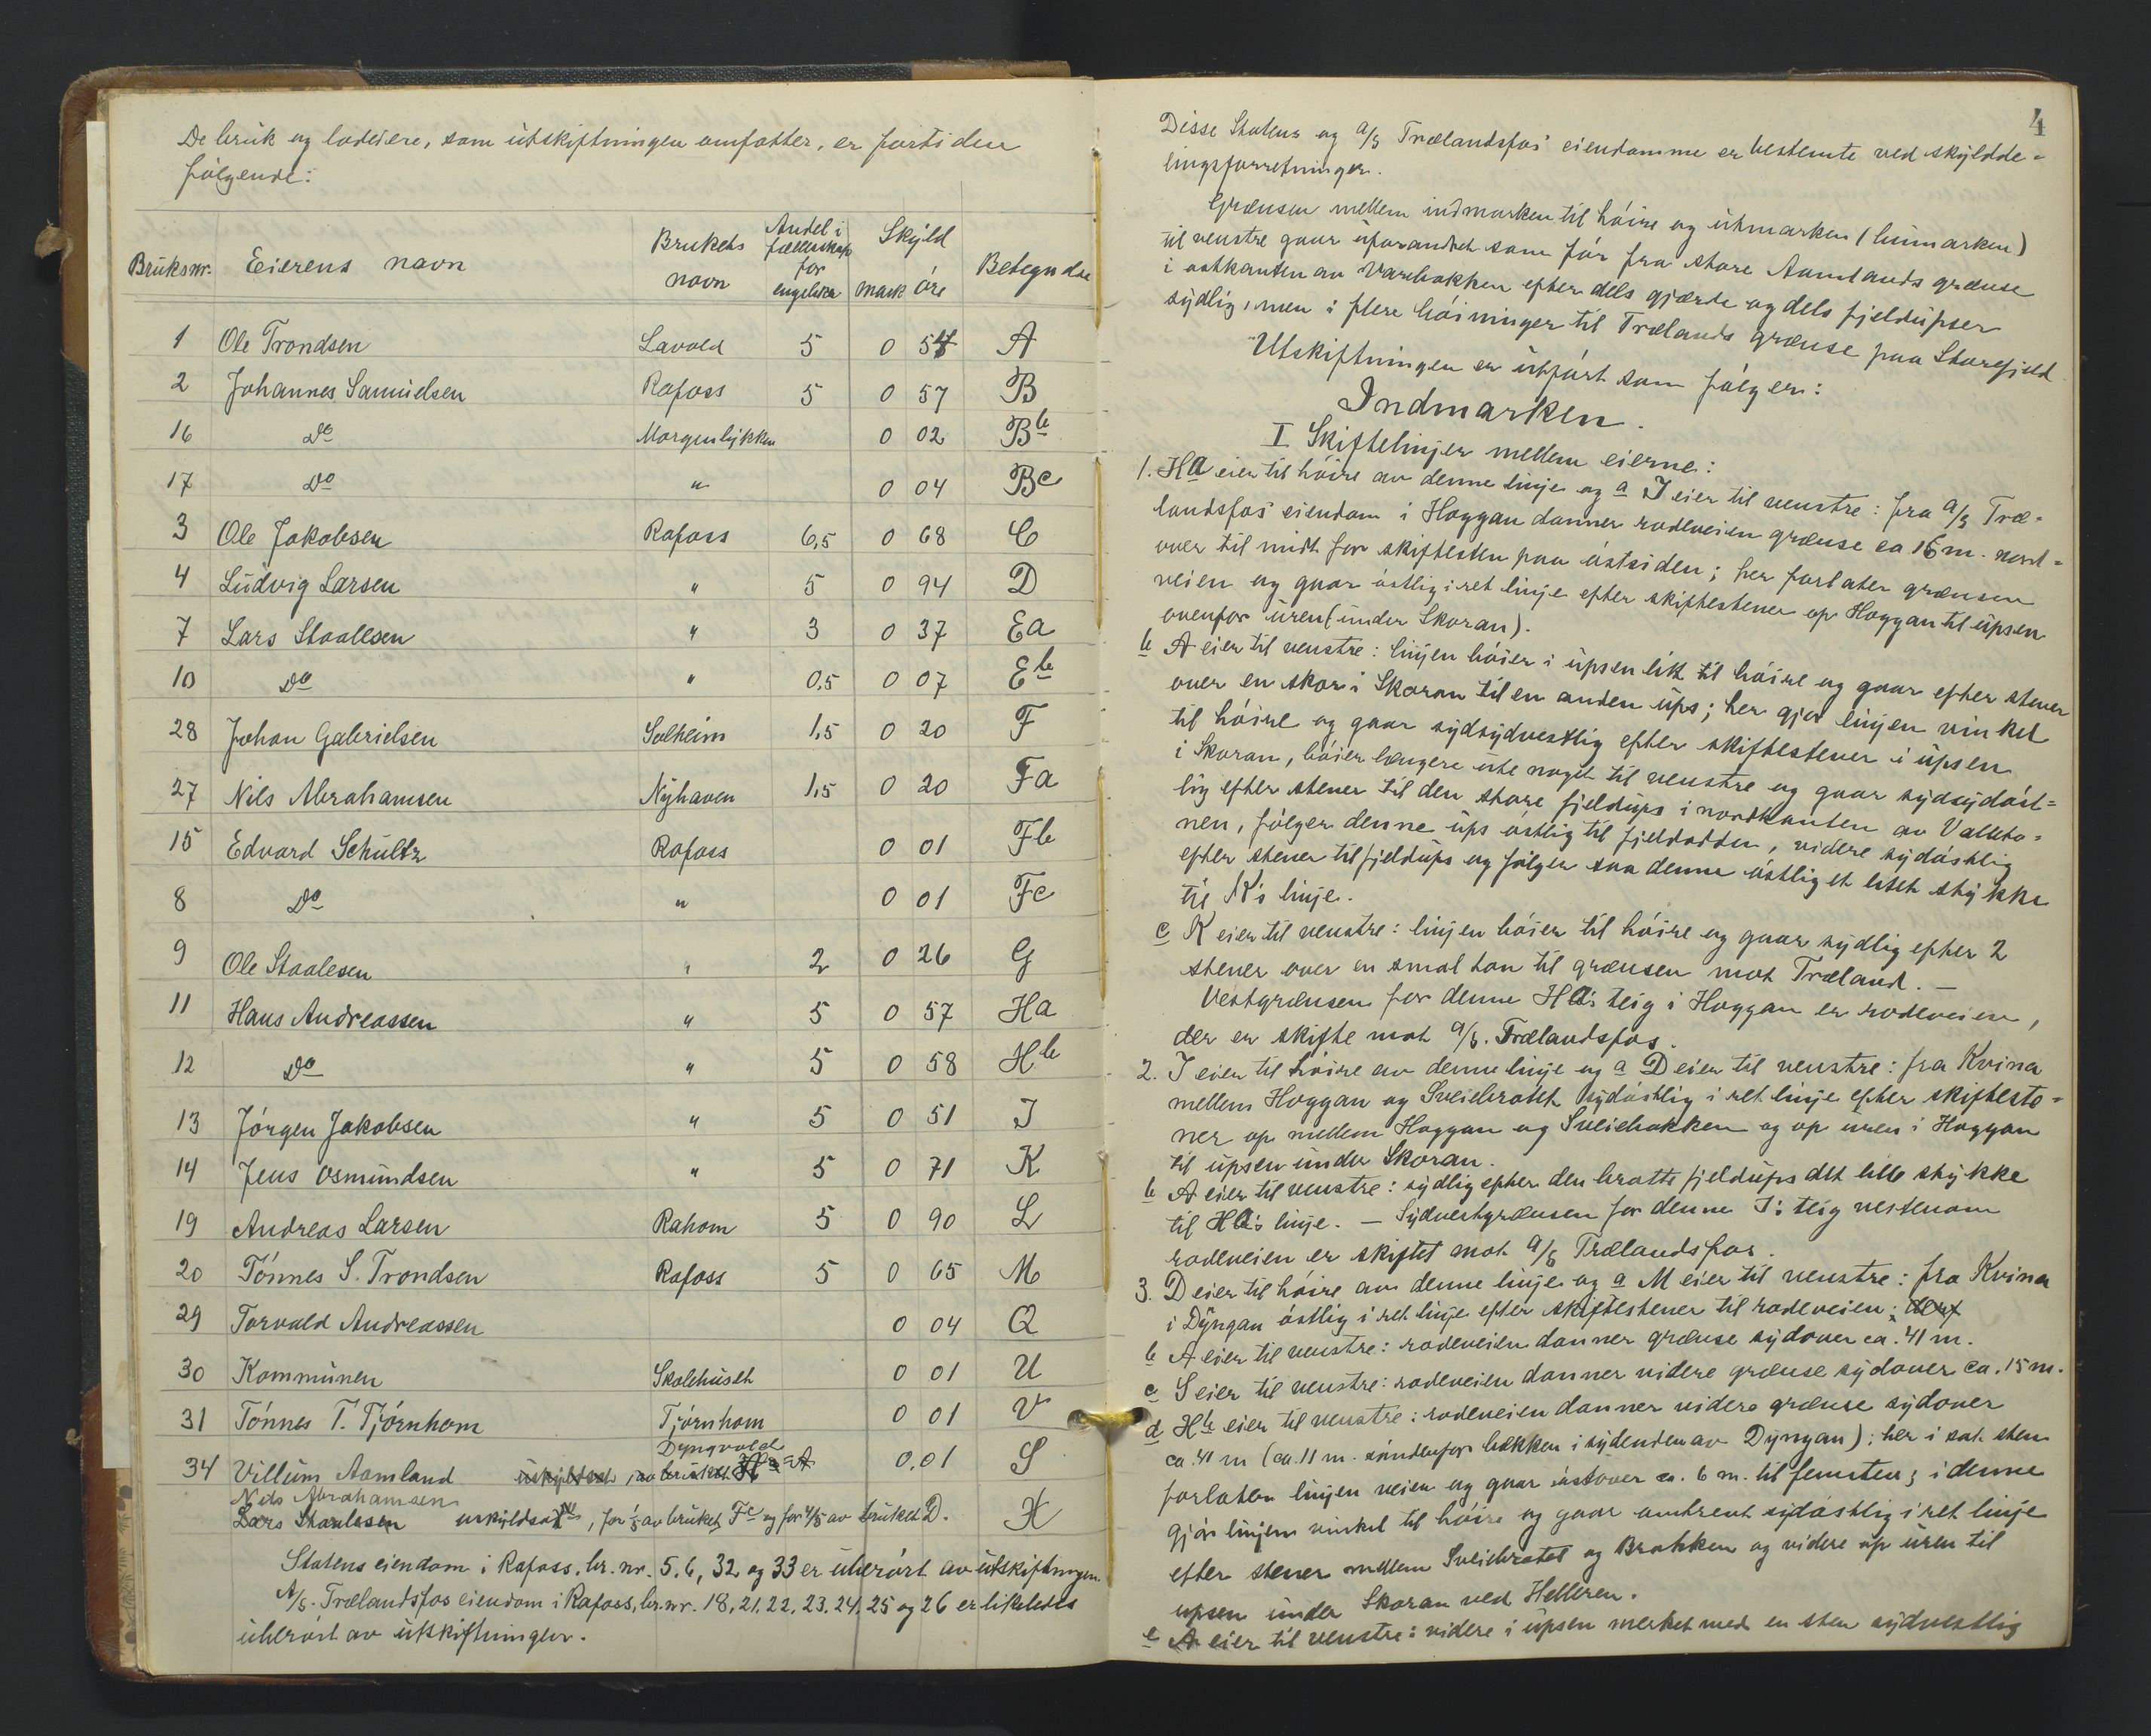 De bruk og lodeiere, som utskiftningen omfatter, er fortiden
følgende:
Bruksnr. Eierens navn Brukets navn Andel i fælleskap for engelsker Skyld mark øre Betegnelse
1 Ole Trondsen Lavold 5 0 54 A
2 Johannes Samuelsen Rafoss 5 0 57 B
16 Do Morgenlykken 0 02 Bb
17 Do " 0 04 Bc
3 Ole Jakobsen Rafoss 6,5 0 68 C
4 Ludvig Larsen " 5 0 94 D
7 Lars Staalesen " 3 0 37 Ea
10 Do " 0,5 0 07 Eb
28 Johan Gabrielsen Solheim 1,5 0 20 F
27 Nils Abrahamsen Nyhaven 1,5 0 20 Fa
15 Edvard Schultz Rafoss 0 01 Fb
8 Do " 0 01 Fc
9 Ole Staalesen " 2 0 26 G
11 Hans Andreassen " 5 0 57 Ha
12 Do " 5 0 58 Hb
13 Jørgen Jakobsen " 5 0 51 I
14 Jens Osmundsen " 5 0 71 K
19 Andreas Larsen Rahom 5 0 90 L
20 Tønnes S. Trondsen Rafoss 5 0 65 M
29 Torvald Andreassen 0 04 Q
30 Kommunen Skolehuset 0 01 U
31 Tønnes T. Tjørnhom Tjørnhom 0 01 V
Dyngvold
34 Villum Aamland uskyldsat, av bruket A 0,01 S
Nils Abrahamsen
Lars Staalesen uskyldsat, for 1/5 av bruket Fa og for 4/5 av bruket D. X
Statens eiendom i Rafoss, br. nr. 5, 6, 32 og 33 er uberørt av utskiftningen.
A/S. Trælandsfos eiendom i Rafoss, br. nr. 18, 21, 22, 23, 24, 25 og 26 er likeledes
uberørt av utskiftningen.
4
Disse Statens og A/S Trælandsfos' eiendomme er bestemte ved skyldde=
lingsforretninger.
Grænsen mellem indmarken til høire og utmarken (heimarken)
til venstre gaar uforandret som før fra store Aamlands grænse
i østkanten av Varebakken efter dels gjærde og dels fjeldupser
sydlig, men i flere bøininger til Trælands grænse paa Storefjeld.
Utskiftningen er utført som følger:
Indmarken.
I Skiftelinjer mellem eierne:
1. Ha eier til høire av denne linje og a I eier til venstre: fra A/S Træ=
landsfos' eiendom i Hoggan danner rodeveien grænse ca 16 m. nord=
over til midt for skiftesten paa østsiden; her forlater grænsen
veien og gaar østlig i ret linje efter skiftestener op Hoggan til upsen
ovenfor uren (under Skoran).
b A eier til venstre: linjen bøier i upsen litt til høire og gaar efter stener
over en skor i Skoran til en anden ups; her gjør linjen vinkel
til høire og gaar sydsydvestlig efter skiftestener i upsen
i Skoran, bøier længere ute noget til venstre og gaar sydsydøst=
lig efter stener til den store fjeldups i nordkanten av Valleto=
nen, følger denne ups østlig til fjeldodden, videre sydøstlig
efter stener til fjeldups og følger saa denne østlig et litet stykke
til K's linje.
c K eier til venstre: linjen bøier til høire og gaar sydlig efter 2
stener over en smal ton til grænsen mot Træland. —
Vestgrænsen for denne Ha's teig i Hoggan er rodeveien,
der er skifte mot A/S. Trælandsfos.
2. I eier til høire av denne linje og a D eier til venstre: fra Kvina
mellem Hoggan og Sveiebrotet sydøstlig i ret linje efter skifteste=
ner op mellem Hoggan og Sveiebakken og op uren i Hoggan
til upsen under Skoran.
b A eier til venstre: sydlig efter den bratte fjeldups det lille stykke
til Ha's linje. — Sydvestgrænsen for denne I's teig vestenom
rodeveien er skiftet mot A/S Trælandsfos.
3. D eier til høire av denne linje og a M eier til venstre: fra Kvina
i Dyngan østlig i ret linje efter skiftestener til rodeveien;
b A eier til venstre: rodeveien danner grænse sydover ca. 41 m.
c S eier til venstre: rodeveien danner videre grænse sydover ca. 15 m.
d Hb eier til venstre: rodeveien danner videre grænse sydover
ca. 41 m (ca. 11 m. søndenfor bækken i sydenden av Dyngan); her i sat sten
forlater linjen veien og gaar østover ca. 6 m. til femsten; i denne
gjør linjen vinkel til høire og gaar omtrent sydøstlig i ret linje
efter stener mellem Sveiebrotet og Brakken og videre op uren til
upsen under Skoran ved Helleren.
e A eier til venstre: videre i upsen merket med en sten sydvestlig